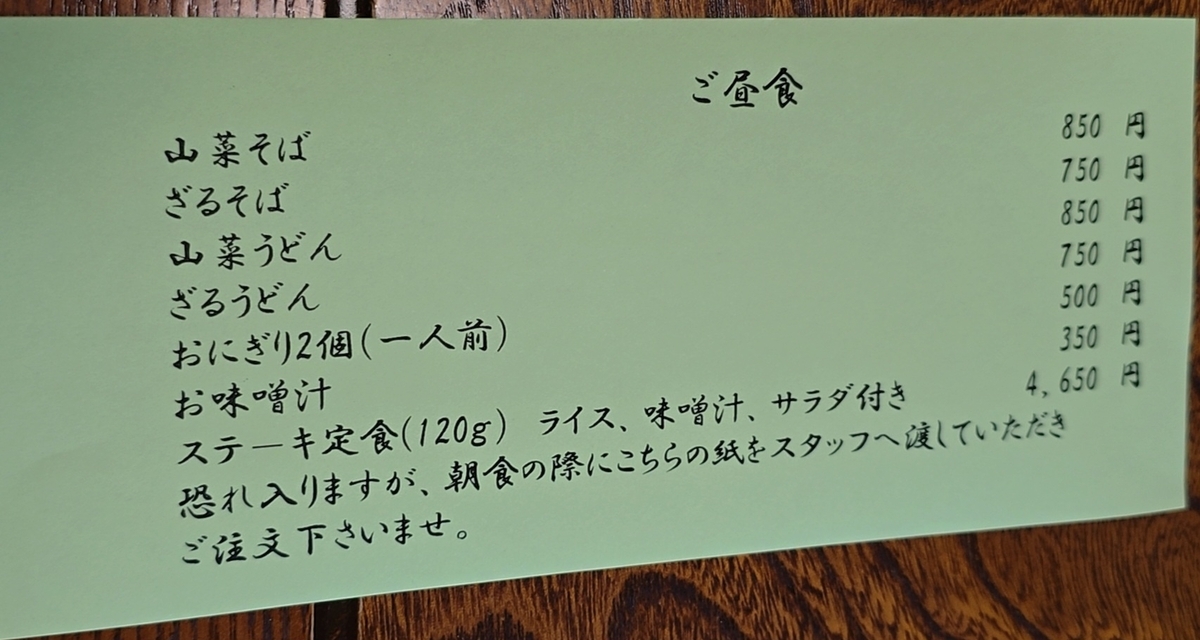 ご昼食
山菜そば 850 円
ざるそば 750 円
山菜うどん 850 円
ざるうどん 750 円
おにぎり2個(一人前) 500 円
お味噌汁 350 円
ステーキ定食(120g) ライス、味噌汁、サラダ付き 4,650 円
恐れ入りますが、朝食の際にこちらの紙をスタッフへ渡していただき
ご注文下さいませ。